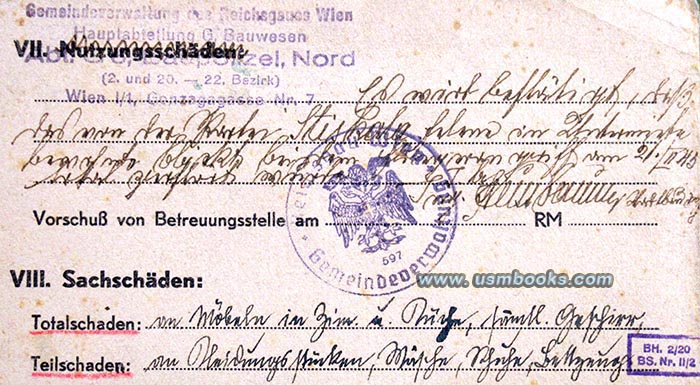 Gemeindeverwaltung des Reichsgaues Wien
Hauptabteilung G, Bauwesen
VII. Nutzungsschäden:
Abt. G 6, Baupolizei, Nord
(2. und 20. — 22. Bezirk)
Wien I/1, Gonzagagasse Nr. 7
Es wird bestätigt, daß
das von der Partei Helene in Untermiete
bewohnte Objekt beim am 21. II. 45
total zerstört wurde
Vorschuß von Betreuungsstelle am RM
Gemeindeverwaltung
597
www.usmbooks.com
VIII. Sachschäden:
Totalschaden: an Möbeln in Zim. u. Küche, sämtl. Geschirr,
Teilschaden: an Kleidungsstücken, Wäsche, Schuhe, Bettzeug
BH. 2/20
BS. Nr. II/2